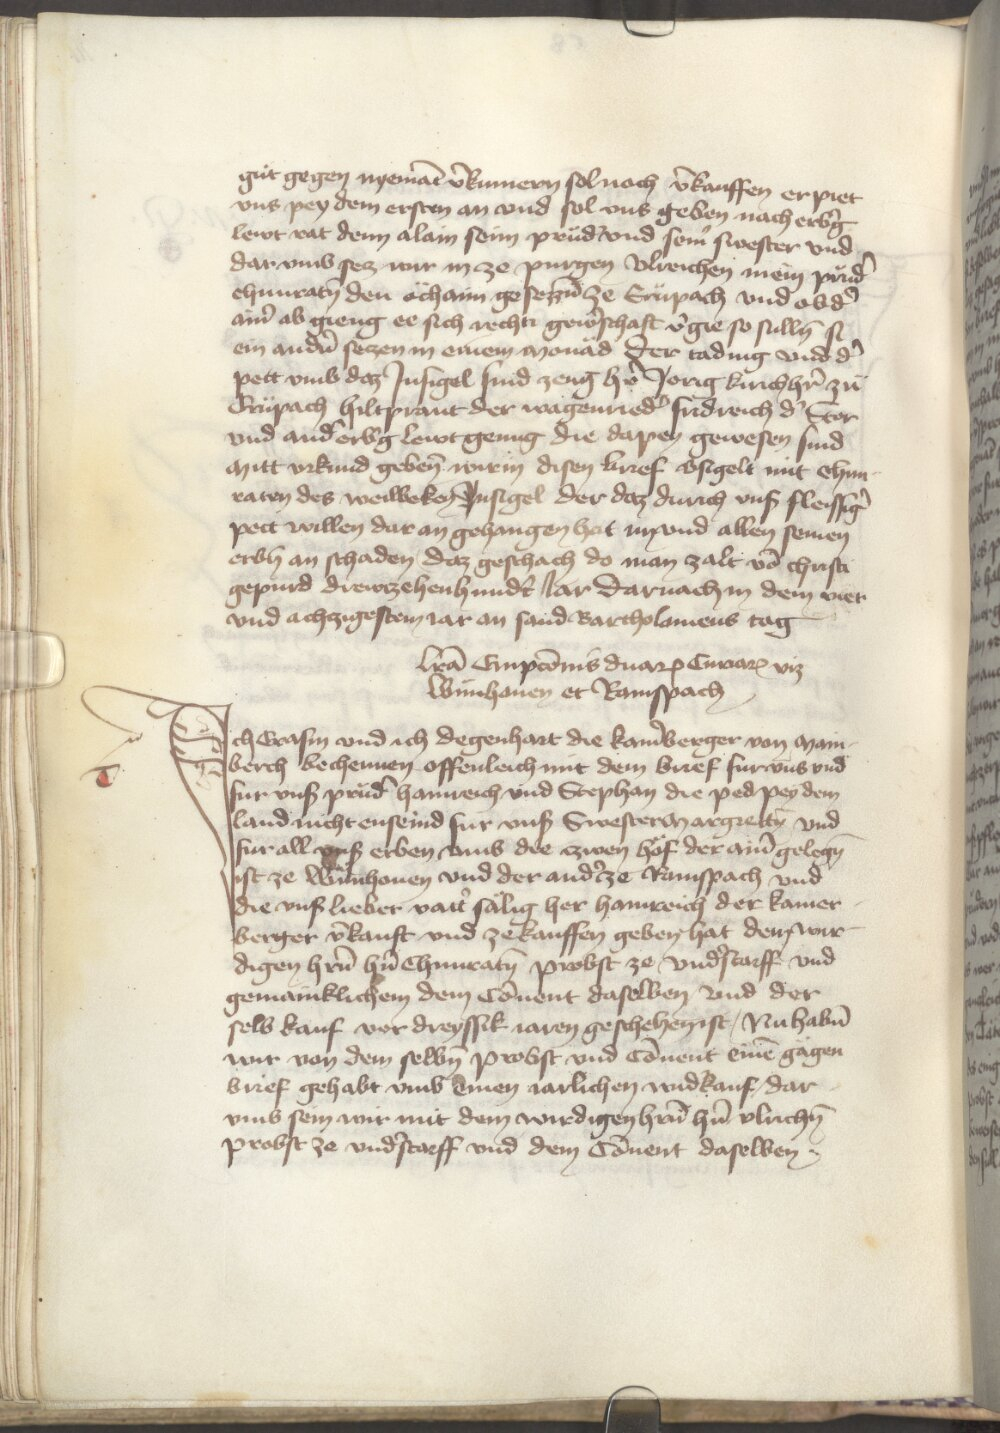 gůt gegen nyemāt v̄kumern sol noch v̄kauffen er piet
vns pey dem ersten an vnd sol vns geben nach erb̄g
lewt rat denn alain seim průd̄ vnd sein̄ swester vnd
dar vmb sez wir in ze purgen Vlreichen mein průd̄
chunratn̄ den ochaim gesezn̄ ze Grůpach vnd ob d̄
ain̄ ab gieng ee sich rechti gew̄schaft v̄gie so sulln̄ si
ein andn̄ sezen in einem monäd Der tading vnd d̄
pett vmb daz Insigel sind zeug h̄ Jorig kirichhr̄ zů
Grůpach hiltprant der wagenried̄ fridreich d̄ Stor
vnd and̄ erb̄g lewt genug die dapey gewesen sind
Mitt vrkund gebem̄ wir in disen brief v̄sigelt mit chun¬
raten des weilbeken Insigel der daz durich vnß fleissiḡ
pett willen dar an gehangen hat im vnd allen seinen
erbn̄ an schaden daz geschach do man zalt vō christi
gepurd drewzehenhund̄t Iar Darnach in dem vier
vnd achzigestem iar an sand Bartholomeus tag
Lrā Empcōnis duarꝝ Curiarꝝ viz
Winhouen et Ramspach
Ich Erasm vnd ich degenhart die kam̄berger von Main¬
berch bechennen offenleich mit dem brief fur vns vnd
fur vnß průd̄ hainreich vnd Stephan die ped pey dem
land nicht enseind fur vnß Swester Margretn̄ vnd
fur all vnß erben vmb die zwen höf der ain̄ gelegn̄
ist ze Winhouen vnd der and̄ ze Ramspach vnd
die vnß lieber vatt̄ sälig her hainreich der kamer¬
berger v̄kauft vnd ze kauffen geben hat dem wir¬
digen hrn̄ hn̄ Chunratn̄ probst ze vnd̄starff vnd
gemainklichem dem Cōuent daselben vnd der
selb kauf vor dreyssik iaren geschehen ist / Nu habn̄
wir von dem selbn̄ probst vnd Cōuent einē gägen
brief gehabt vmb einen iarlichen wid̄kauf / dar
vmb sein wir mit dem wirdigen hrn̄ hn̄ vlrichn̄
probst ze vnd̄starff vnd dem Cōuent daselben